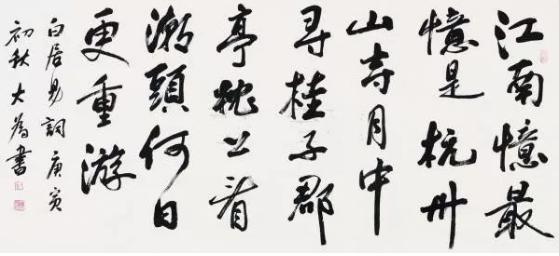 江南憶最
憶是杭州
山寺月中
尋桂子郡
亭枕上看
潮頭何日
更重游
白居易詞庚寅
初秋大為書